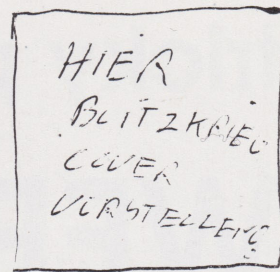 HIER
BLITZKRIEG
COVER
VORSTELLEN?